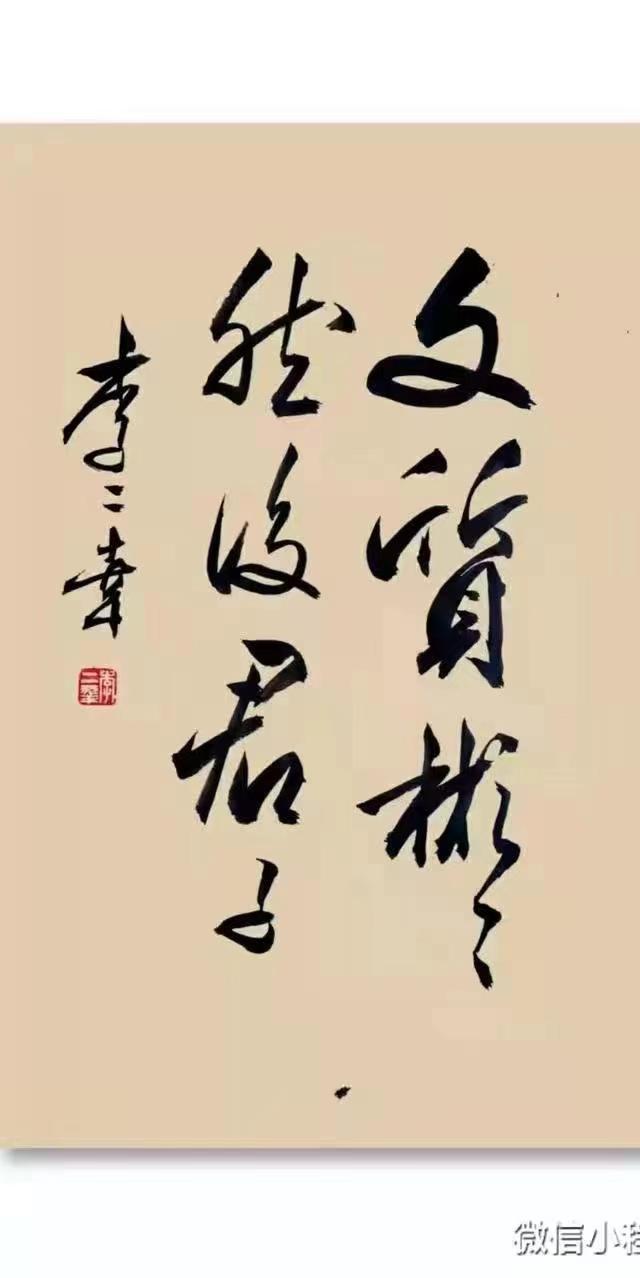 文質彬彬
然後君子
李二韋
微信小程